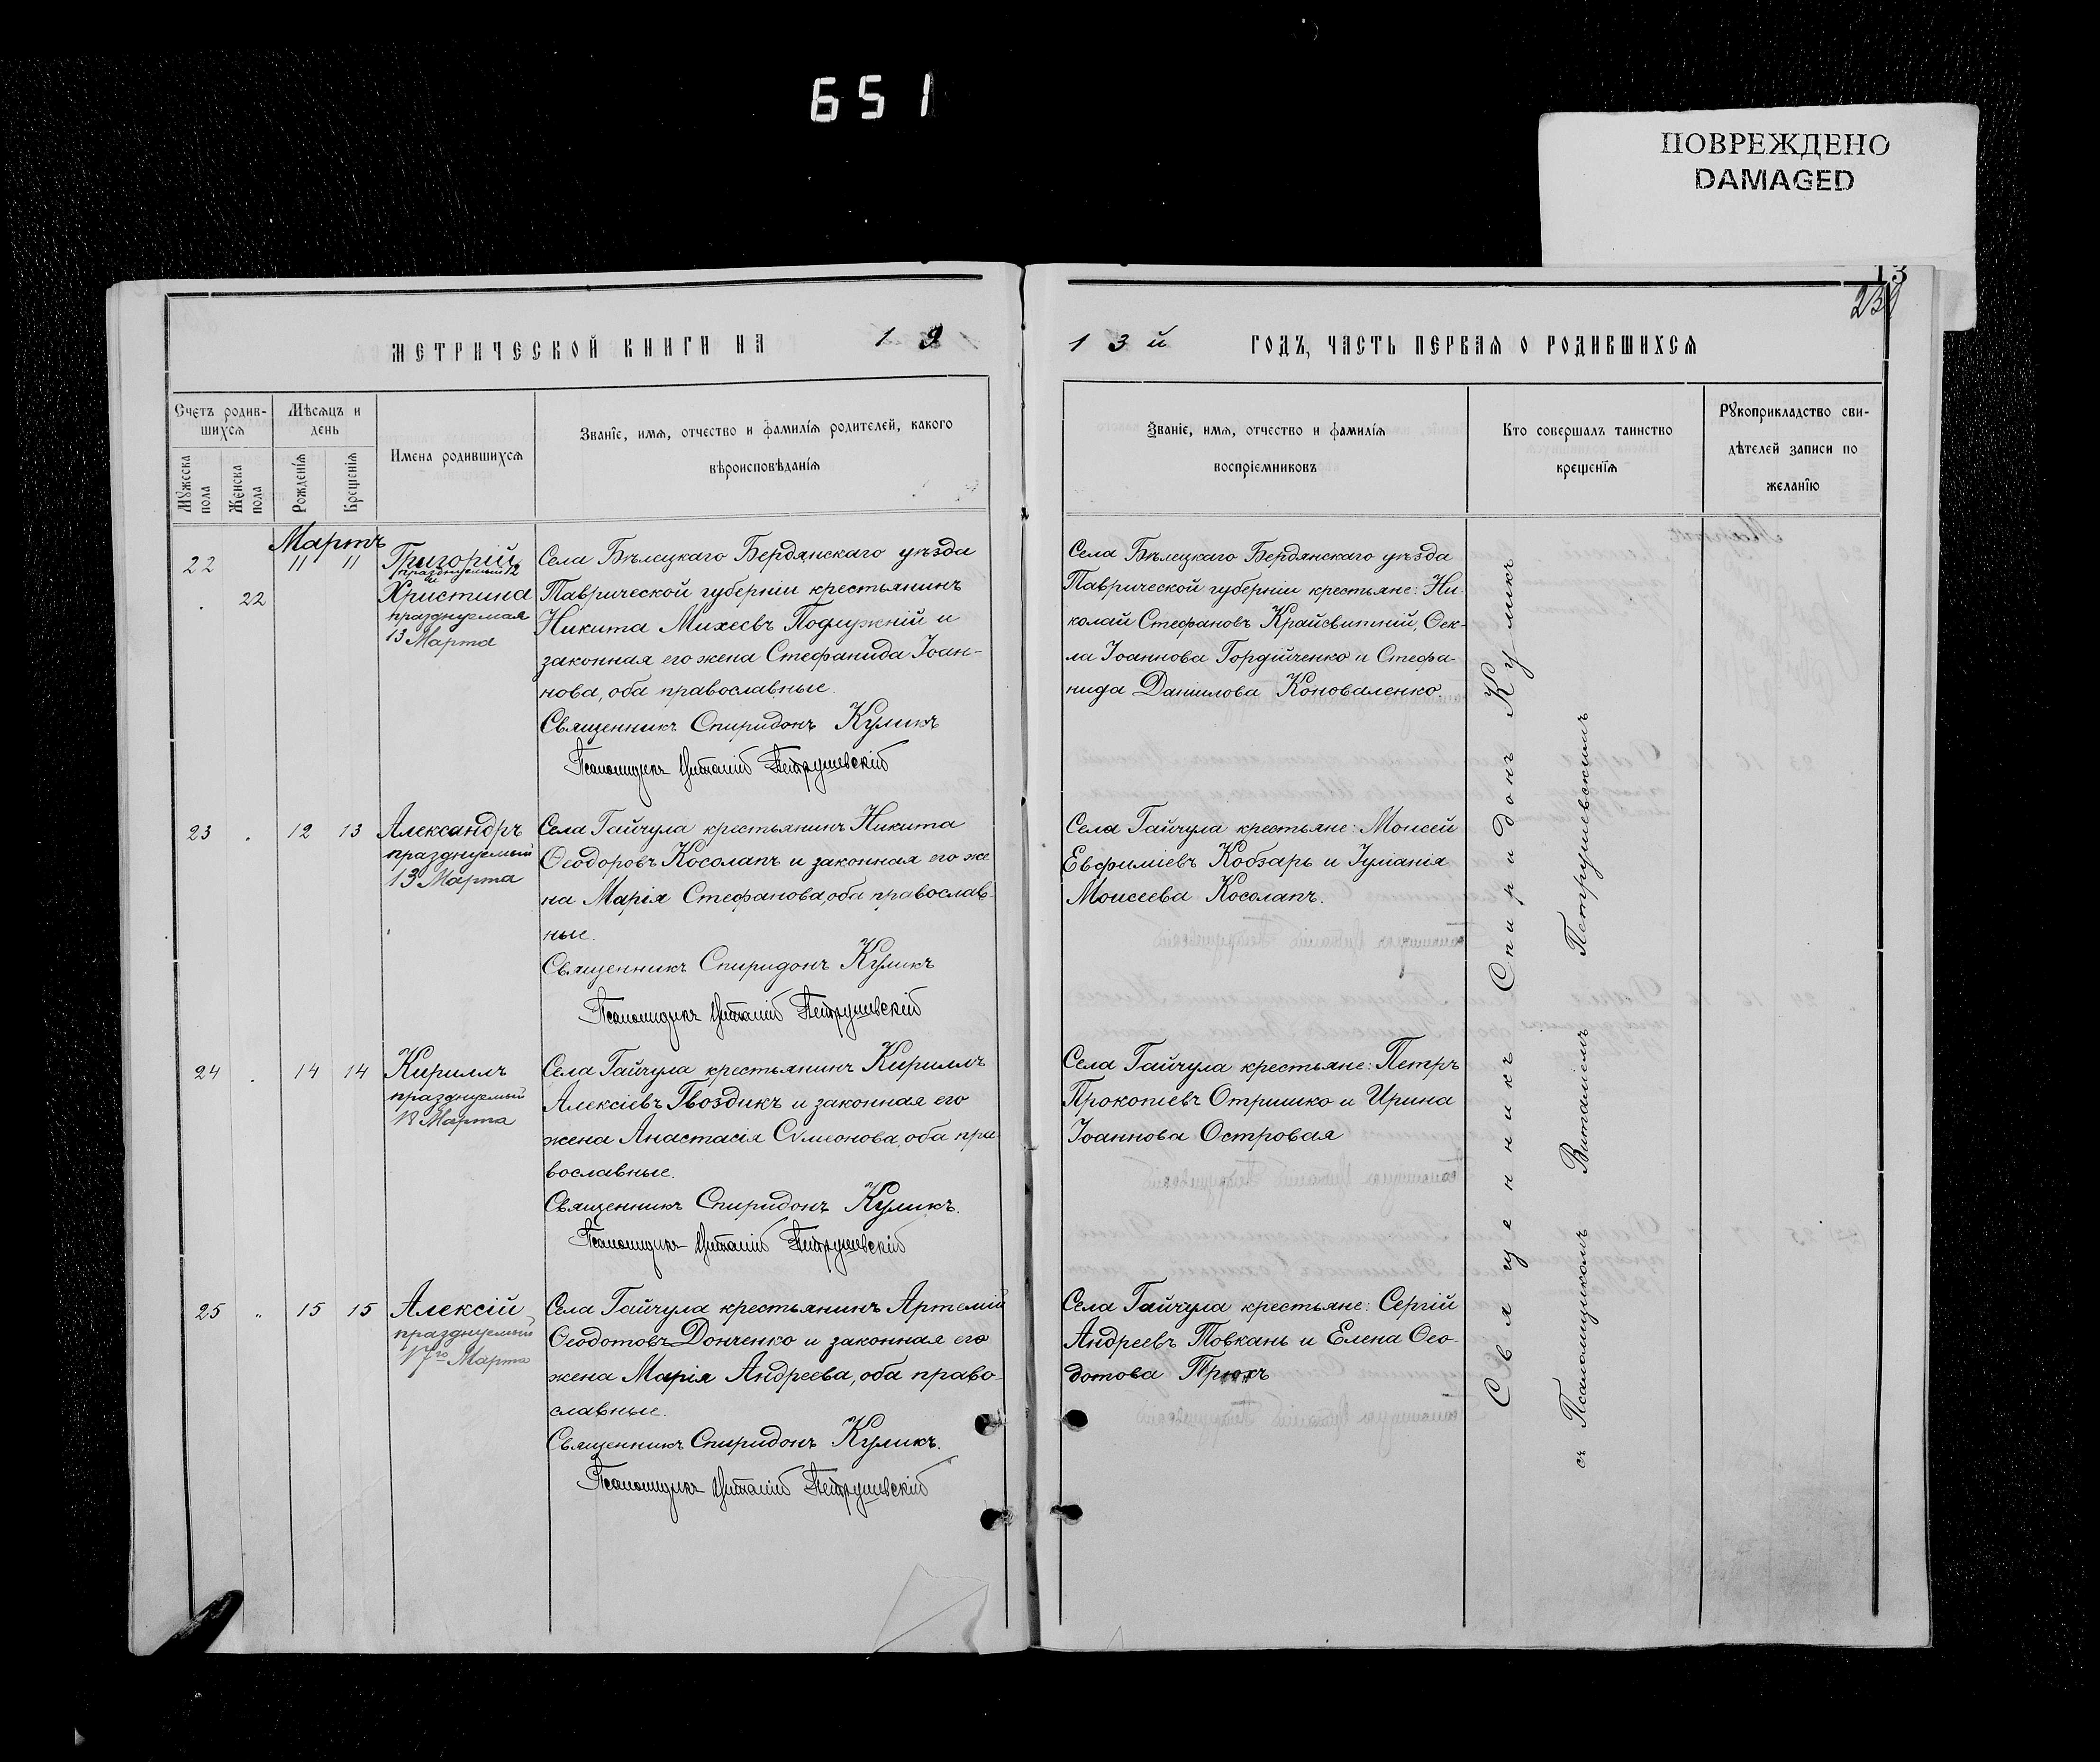 651
ПОВРЕЖДЕНО
DAMAGED
13
МЕТРИЧЕСКОЙ КНИГИ НА 19
13й ГОДЪ, ЧАСТЬ ПЕРВАЯ О РОДИВШИХСЯ
Счетъ родив-
шихся
Мѣсяцъ и
день
Мужеска
пола
Женска
пола
Рожденія
Крещенія
Имена родившихся
Званіе, имя, отчество и фамилія родителей, какого
вѣроисповѣданія
Званіе, имя, отчество и фамилія
воспріемниковъ
Кто совершалъ таинство
крещенія
Рукоприкладство сви-
дѣтелей записи по
желанію
Мартъ
22 11 11
Григорій
празднуемый 12
и
22
Христина
празднуемая
13 Марта
Села Бѣлецкаго Бердянскаго уѣзда
Таврической губерніи крестьянинъ
Никита Михеевъ Подлужній и
законная его жена Стефанида Іоан-
нова, оба православные.
Священникъ Спиридонъ Куликъ
Псаломщикъ Виталій Петрушевскій
Села Бѣлецкаго Бердянскаго уѣзда
Таврической губерніи крестьяне: Ни-
колай Стефановъ Крайсвитній, Ѳек-
ла Іоаннова Гордійченко и Стефа-
нида Даниилова Коноваленко.
23 . 12 13
Александръ
празднуемый
13 Марта
Села Гайчула крестьянинъ Никита
Ѳеодоровъ Косолапъ и законная его же
на Марія Стефанова, оба православ-
ные.
Священникъ Спиридонъ Куликъ
Псаломщикъ Виталій Петрушевскій
Села Гайчула крестьяне: Моисей
Евфиміевъ Кобзарь и Іуліанія
Моисеева Косолапъ.
24 . 14 14
Кириллъ
празднуемый
18 Марта
Села Гайчула крестьянинъ Кириллъ
Алексіевъ Гвоздикъ и законная его
жена Анастасія Сѵмеонова, оба пра-
вославные.
Священникъ Спиридонъ Куликъ.
Псаломщикъ Виталій Петрушевскій
Села Гайчула крестьяне: Петръ
Прокопіевъ Отришко и Ирина
Іоаннова Островая
25 " 15 15
Алексій
празднуемый
17го Марта
Села Гайчула крестьянинъ Артемій
Ѳеодотовъ Донченко и законная его
жена Марія Андреева, оба право-
славные.
Священникъ Спиридонъ Куликъ.
Псаломщикъ Виталій Петрушевскій
Села Гайчула крестьяне: Сергій
Андреевъ Товкань и Елена Ѳео-
дотова Трюхъ
Священникъ Спиридонъ Куликъ
съ Псаломщикомъ Виталіемъ Петрушевскимъ